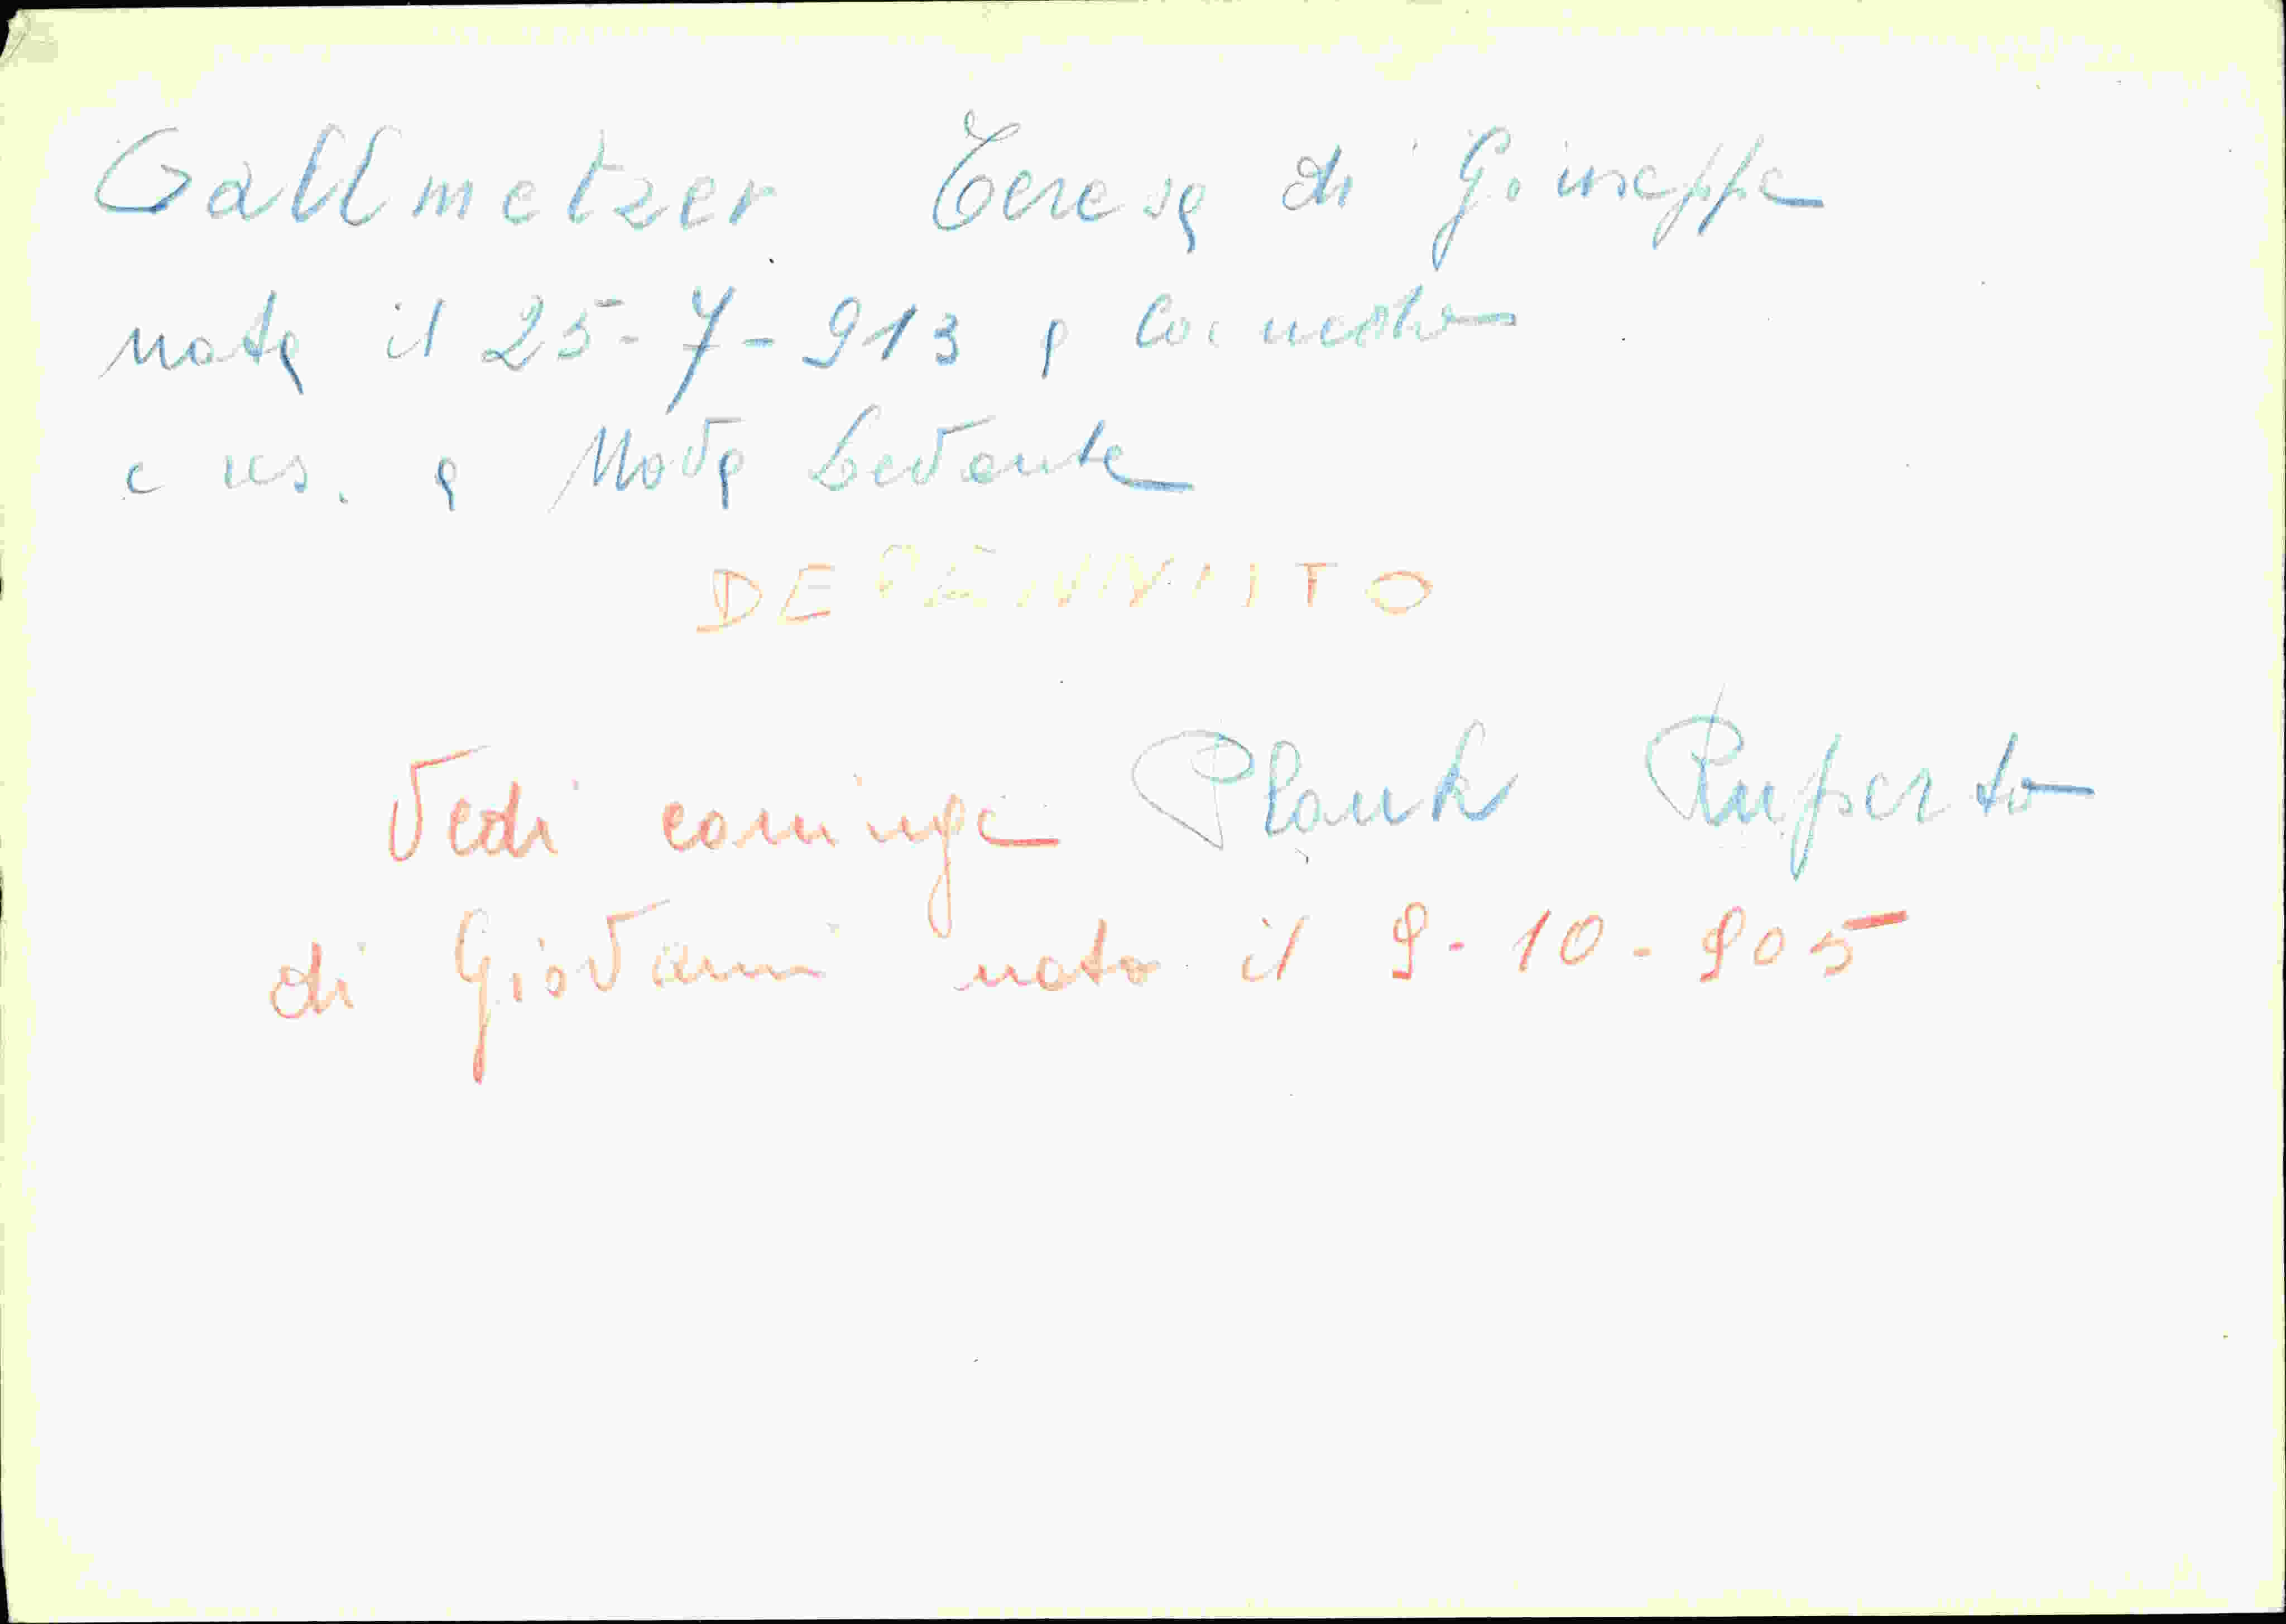 Gallmetzer Teresa di Giuseppe
nata il 25-7-913 a
e res. a Nova Levante
Vedi coniuge Plank Ruperto
di Giovanni nato il 9-10-905